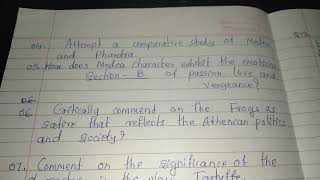 04. Attempt a comparative study of Medea
and Phaedra.
05. How does Medea character exhibit the emotions
Section-B of passion, love and
vengeance?
06.
06. Critically comment on the Frogs as
satire that reflects the Athenian politics
and society?
07. Comment on the significance of the
in the play Tartuffe